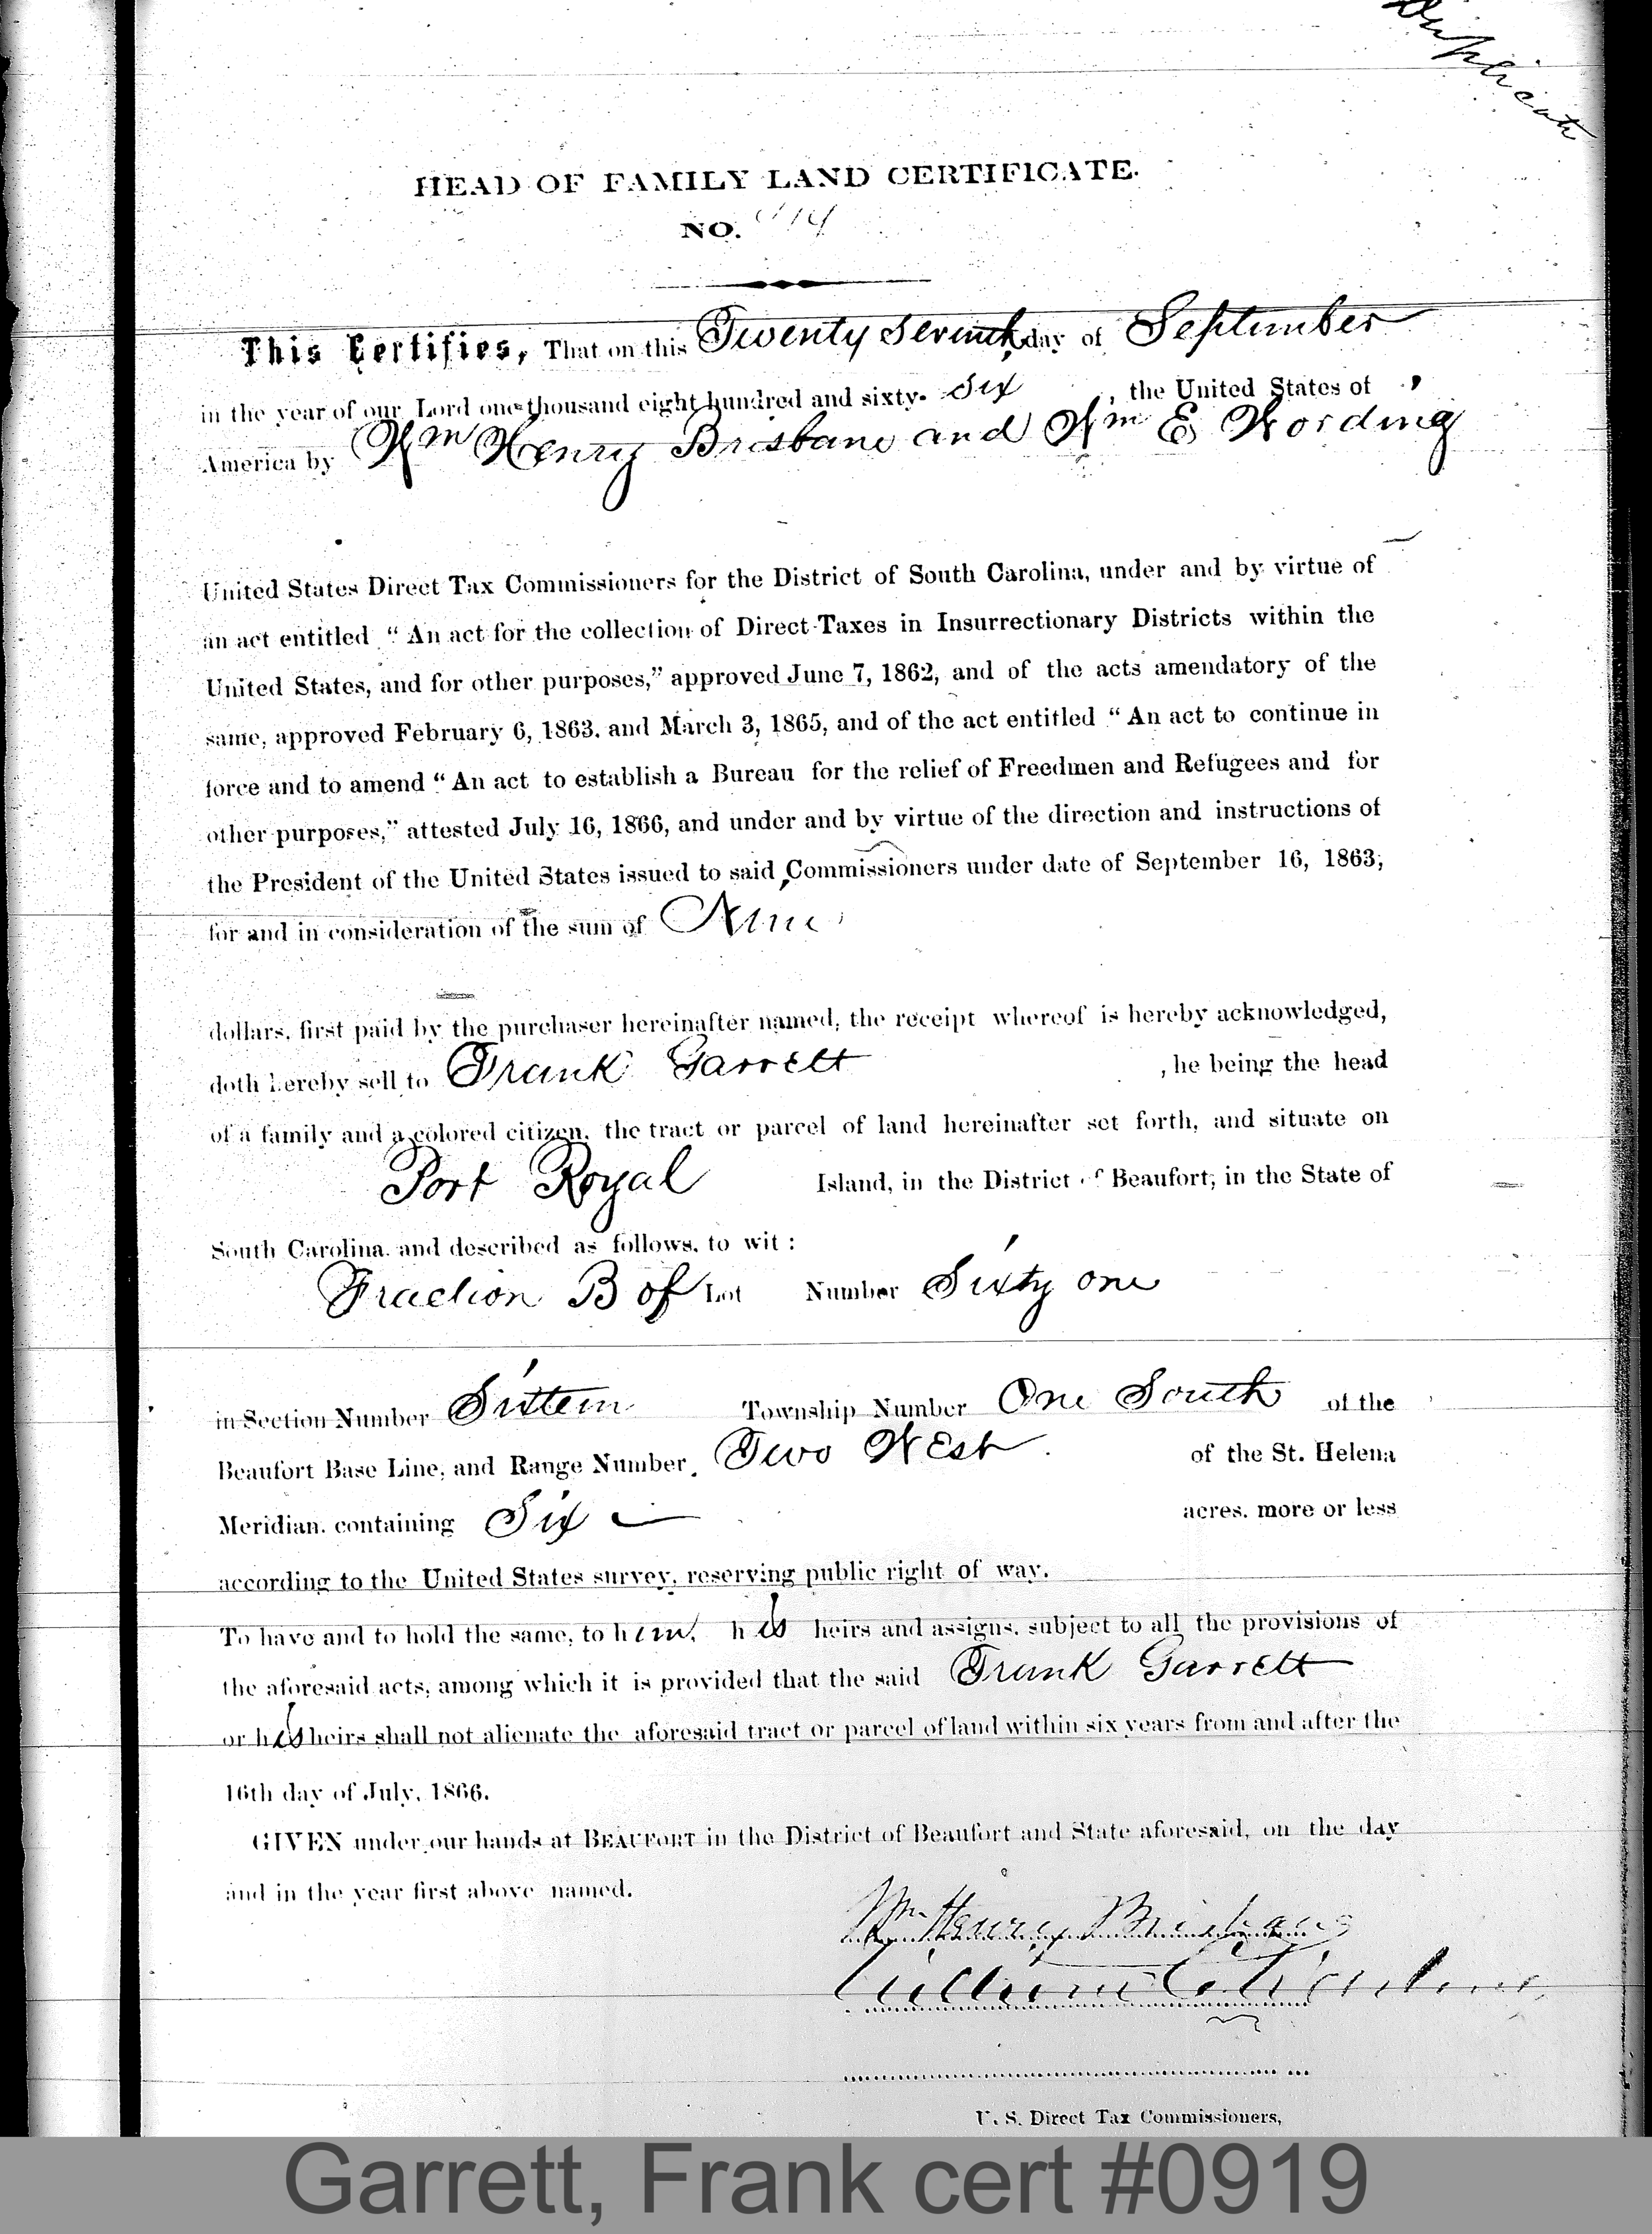 Duplicate
HEAD OF FAMILY LAND CERTIFICATE.
NO.
This Certifies, That on this Twenty Seventh day of September
in the year of our Lord one thousand eight hundred and sixty- Six , the United States of
America by Wm Henry Brisbane and Wm E Wording
United States Direct Tax Commissioners for the District of South Carolina, under and by virtue of
an act entitled "An act for the collection of Direct Taxes in Insurrectionary Districts within the
United States, and for other purposes," approved June 7, 1862, and of the acts amendatory of the
same, approved February 6, 1863, and March 3, 1865, and of the act entitled "An act to continue in
force and to amend "An act to establish a Bureau for the relief of Freedmen and Refugees and for
other purposes," attested July 16, 1866, and under and by virtue of the direction and instructions of
the President of the United States issued to said Commissioners under date of September 16, 1863,
for and in consideration of the sum of Nine
dollars, first paid by the purchaser hereinafter named, the receipt whereof is hereby acknowledged,
doth hereby sell to Frank Garrett , he being the head
of a family and a colored citizen, the tract or parcel of land hereinafter set forth, and situate on
Port Royal Island, in the District of Beaufort, in the State of
South Carolina, and described as follows, to wit :
Fraction B of Lot Number Sixty one
in Section Number Sixteen Township Number One South of the
Beaufort Base Line, and Range Number, Two West of the St. Helena
Meridian, containing Six acres, more or less
according to the United States survey, reserving public right of way.
To have and to hold the same, to him, his heirs and assigns, subject to all the provisions of
the aforesaid acts, among which it is provided that the said Frank Garrett
or his heirs shall not alienate the aforesaid tract or parcel of land within six years from and after the
16th day of July, 1866.
GIVEN under our hands at BEAUFORT in the District of Beaufort and State aforesaid, on the day
and in the year first above named.
Wm Henry Brisbane
William E Wording
U. S. Direct Tax Commissioners,
Garrett, Frank cert #0919